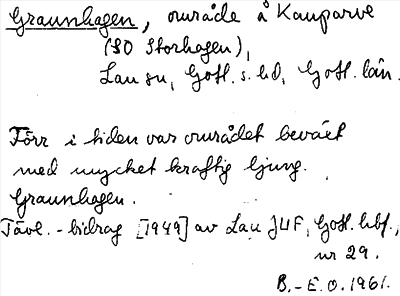 Graunhagen, område å Kauparve
(SO Storhagen),
Lau sn, Gotl. s. hd, Gotl. län.
Förr i tiden var området beväxt
med mycket kraftig ljung.
Graunhagen.
Tävl.-bidrag [1949] av Lau JUF, Gotl. hbf.,
nr 29.
B.-E. O. 1961.